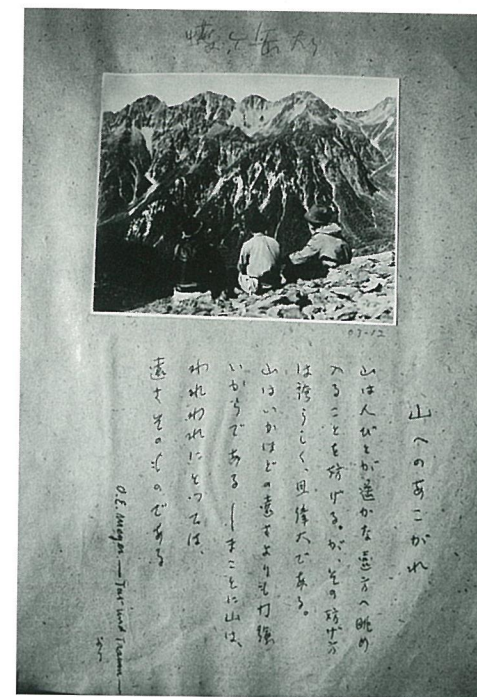 蝶ケ岳より
07-12
山へのあこがれ
山は人びとが遥かな遠方へ眺め
入ることを妨げる。が、その妨げ方
は誇らしく、且偉大である。
山はいかほどの遠さよりも力強
いからである ― まことに山は、
われわれにとっては、
遠さそのものである
O.E. Meyer ― Tat und Traum ―
より